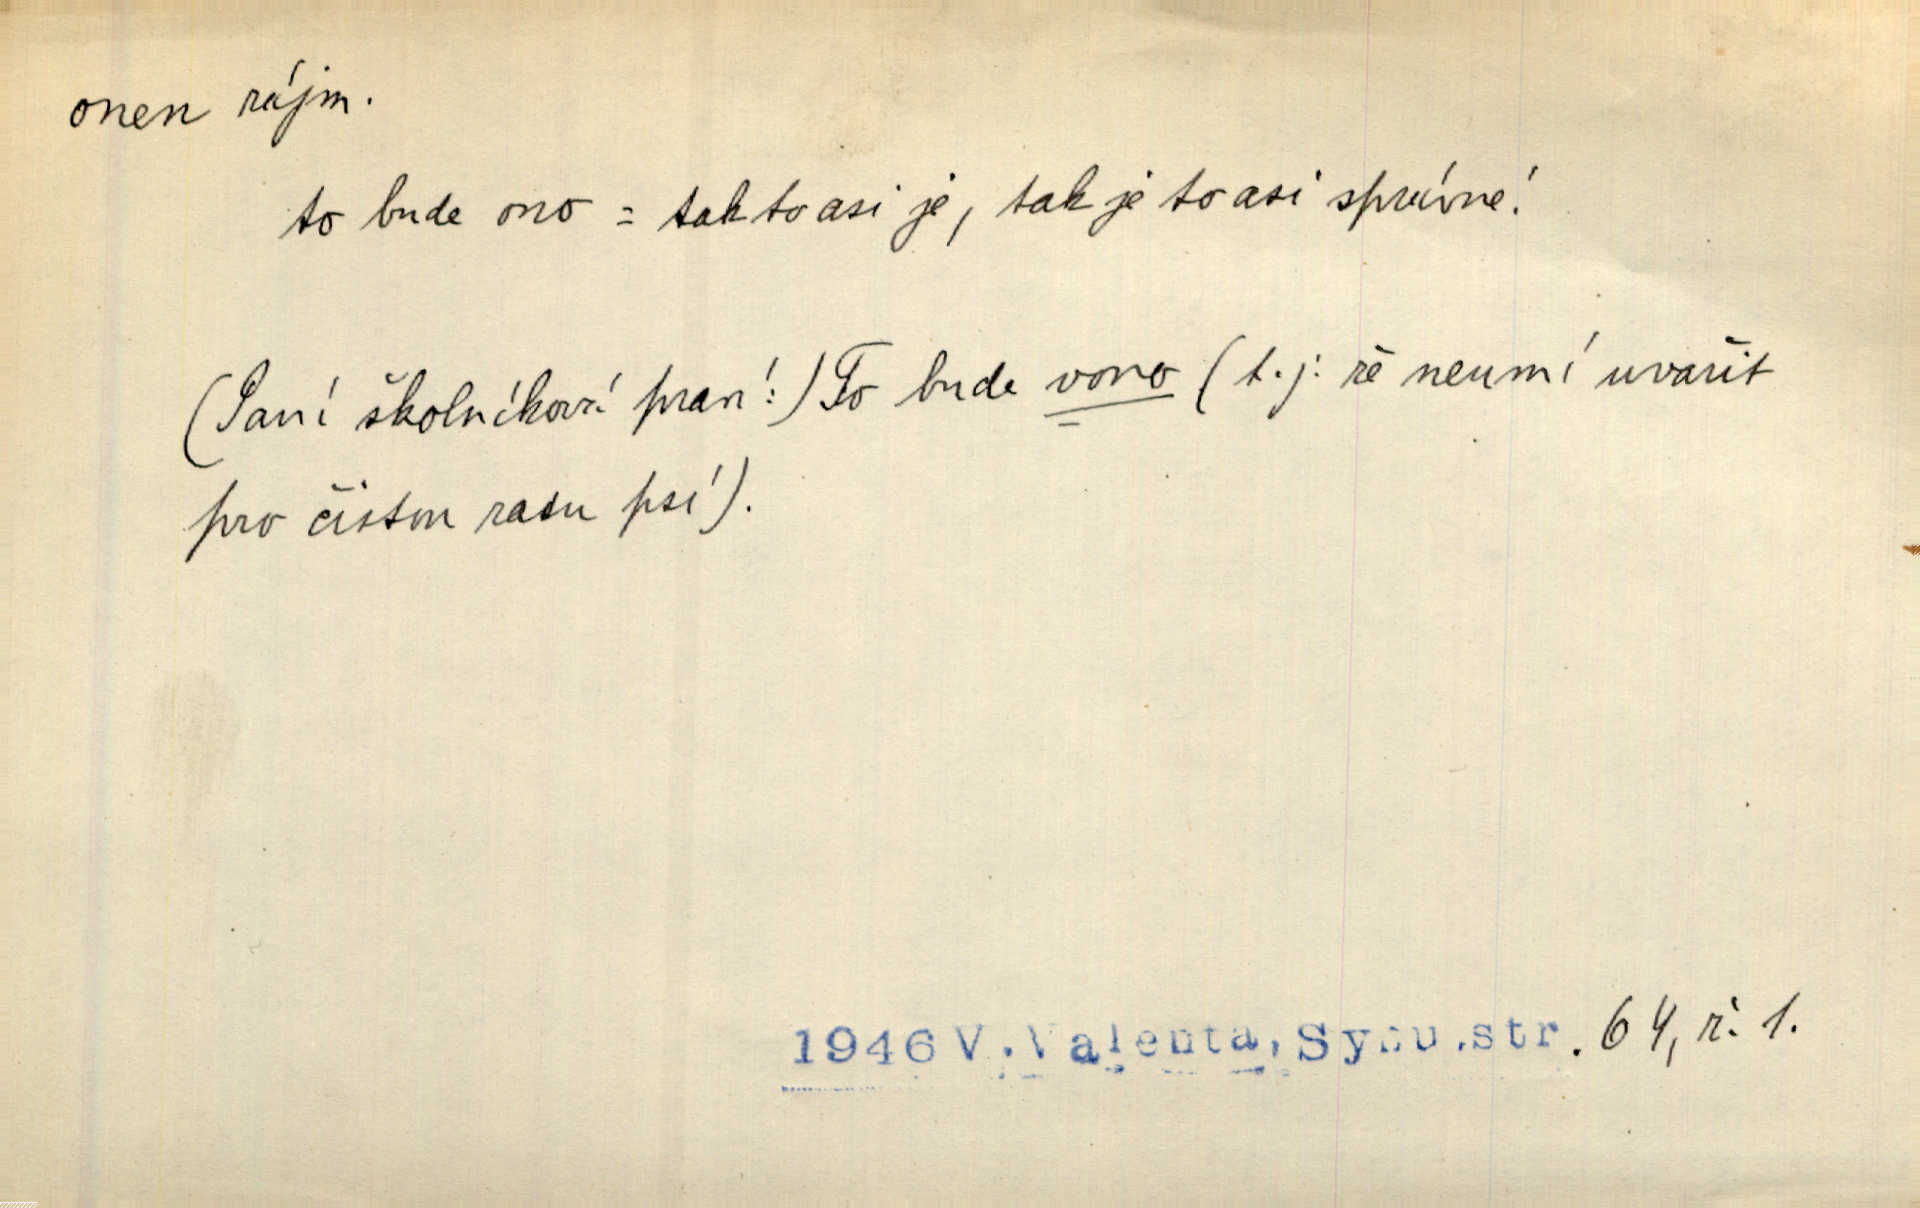 onen zájm.
to bude ono = tak to asi je, tak je to asi správné!
(Paní školníková praví:) To bude vono (t. j. že neumí uvařit
pro čistou rasu psí).
1946 V. Valenta, Synu. str. 64, ř. 1.